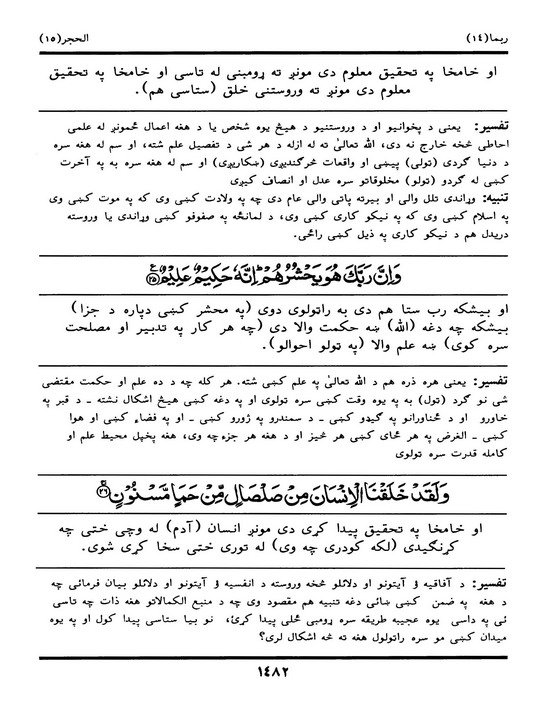 ربما(١٤)
الحجر(١٥)
او خامخا په تحقیق معلوم دی مونږ ته ړومبنی له تاسی او خامخا په تحقیق
معلوم دی مونږ ته وروستنی خلق (ستاسی هم).
تفسیر: یعنی د پخوانیو او د وروستنیو د هیڅ یوه شخص یا د هغه اعمال ځمونږ له علمی
احاطی څخه خارج نه دی، الله تعالیٰ ته له ازله د هر شی د تفصیل علم شته، او سم له هغه سره
د دنیا گردی (ټولی) پیښی او واقعات څرگندیږی (ښکاریږی) او سم له هغه سره به په آخرت
کښی له گردو (ټولو) مخلوقاتو سره عدل او انصاف کیږی
تنبیه: وړاندی تلل والی او بیرته پاتی والی عام دی چه په ولادت کښی وی که په موت کښی وی
په اسلام کښی وی که په نیکو کاری کښی وی، د لمانځه په صفوفو کښی وړاندی یا وروسته
دریدل هم د نیکو کاری په ذیل کښی راځی.
وَاِنَّ رَبَّكَ هُوَ يَحْشُرُهُمْ ؕ اِنَّهٗ حَكِيْمٌ عَلِيْمٌ ﴿٢٥﴾
او بیشکه رب ستا هم دی به راټولوی دوی (په محشر کښی دپاره د جزا)
بیشکه چه دغه (الله) ښه حکمت والا دی (چه هر کار په تدبیر او مصلحت
سره کوی) ښه علم والا (په ټولو احوالو).
تفسیر: یعنی هره ذره هم د الله تعالیٰ په علم کښی شته. هر کله چه د ده علم او حکمت مقتضی
شی نو گرد (ټول) به په یوه وقت کښی سره ټولوی او په دغه کښی هیڅ اشکال نشته ـ د قبر په
خاورو او د ځناورانو په گیډو کښی ـ د سمندرو په ژورو کښی ـ او په فضاء کښی او هوا
کښی ـ الغرض په هر ځای کښی هر څیز او د هغه هر جزء چه وی، هغه پخپل محیط علم او
کامله قدرت سره ټولوی
وَلَقَدْ خَلَقْنَا الْاِنْسَانَ مِنْ صَلْصَالٍ مِّنْ حَمَاٍ مَّسْنُوْنٍ ﴿٢٦﴾
او خامخا په تحقیق پیدا کړی دی مونږ انسان (آدم) له وچی ختی چه
کړنگیدی (لکه کودری چه وی) له توری ختی سخا کړی شوی.
تفسیر: د آفاقیه ؤ آیتونو او دلائلو څخه وروسته د انفسیه ؤ آیتونو او دلائلو بیان فرمائی چه
د هغه په ضمن کښی ښائی دغه تنبیه هم مقصود وی چه د منبع الکمالاتو هغه ذات چه تاسی
ئی په داسی یوه عجیبه طریقه سره ړومبی ځلی پیدا کړئ، نو بیا ستاسی پیدا کول او په یوه
میدان کښی مو سره راټولول هغه ته څه اشکال لری؟
١٤٨٢